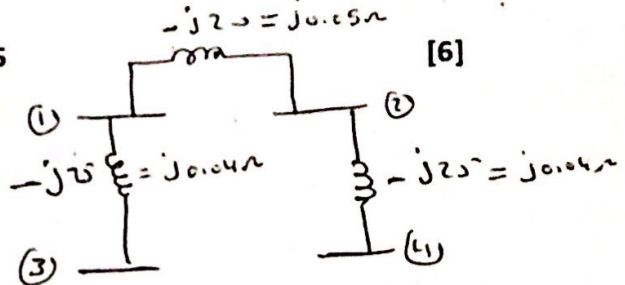 -j20 = j0.05Ω
5 [6]
① ②
-j25 = j0.04Ω -j25 = j0.04Ω
③ ④